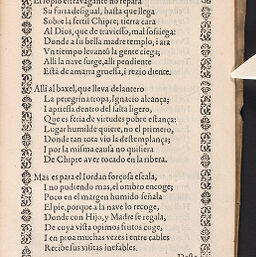 El ſoplo extrauagante no repara
Su furia deſigual, haſta que llega
Sobre la fertil Chipre, tierra cara
Al Dios, que de trauieſſo, mal ſoſsiega:
Donde a ſu bella madre templo, i ara
Vn tiempo leuantò la gente ciega;
Alli la naue ſurge, alli pendiente
Eſtà de amarra grueſſa, i rezio diente.
Alli al baxel, que lleua delantero
La peregrina tropa, Ignacio alcança;
I aprieſſa dentro del ſalta ligero,
Que es feria de virtudes pobre eſtança:
Lugar humilde quiere, no el primero,
Donde tan rota vio la deſtemplança;
I por la miſma cauſa no quiſiera
De Chipre auer tocado en la ribera.
Mas es para el Iordan forçoſa eſcala,
I no pudiendo mas, el ombro encoge;
Poco en el margen humido ſeñala
El pie, porque a la naue lo recoge,
Donde con Hijo, y Madre ſe regala,
De cuya viſta opimos frutos coge,
I en proa muchas vezes i entre cables
Recibe ſus viſitas inefables.